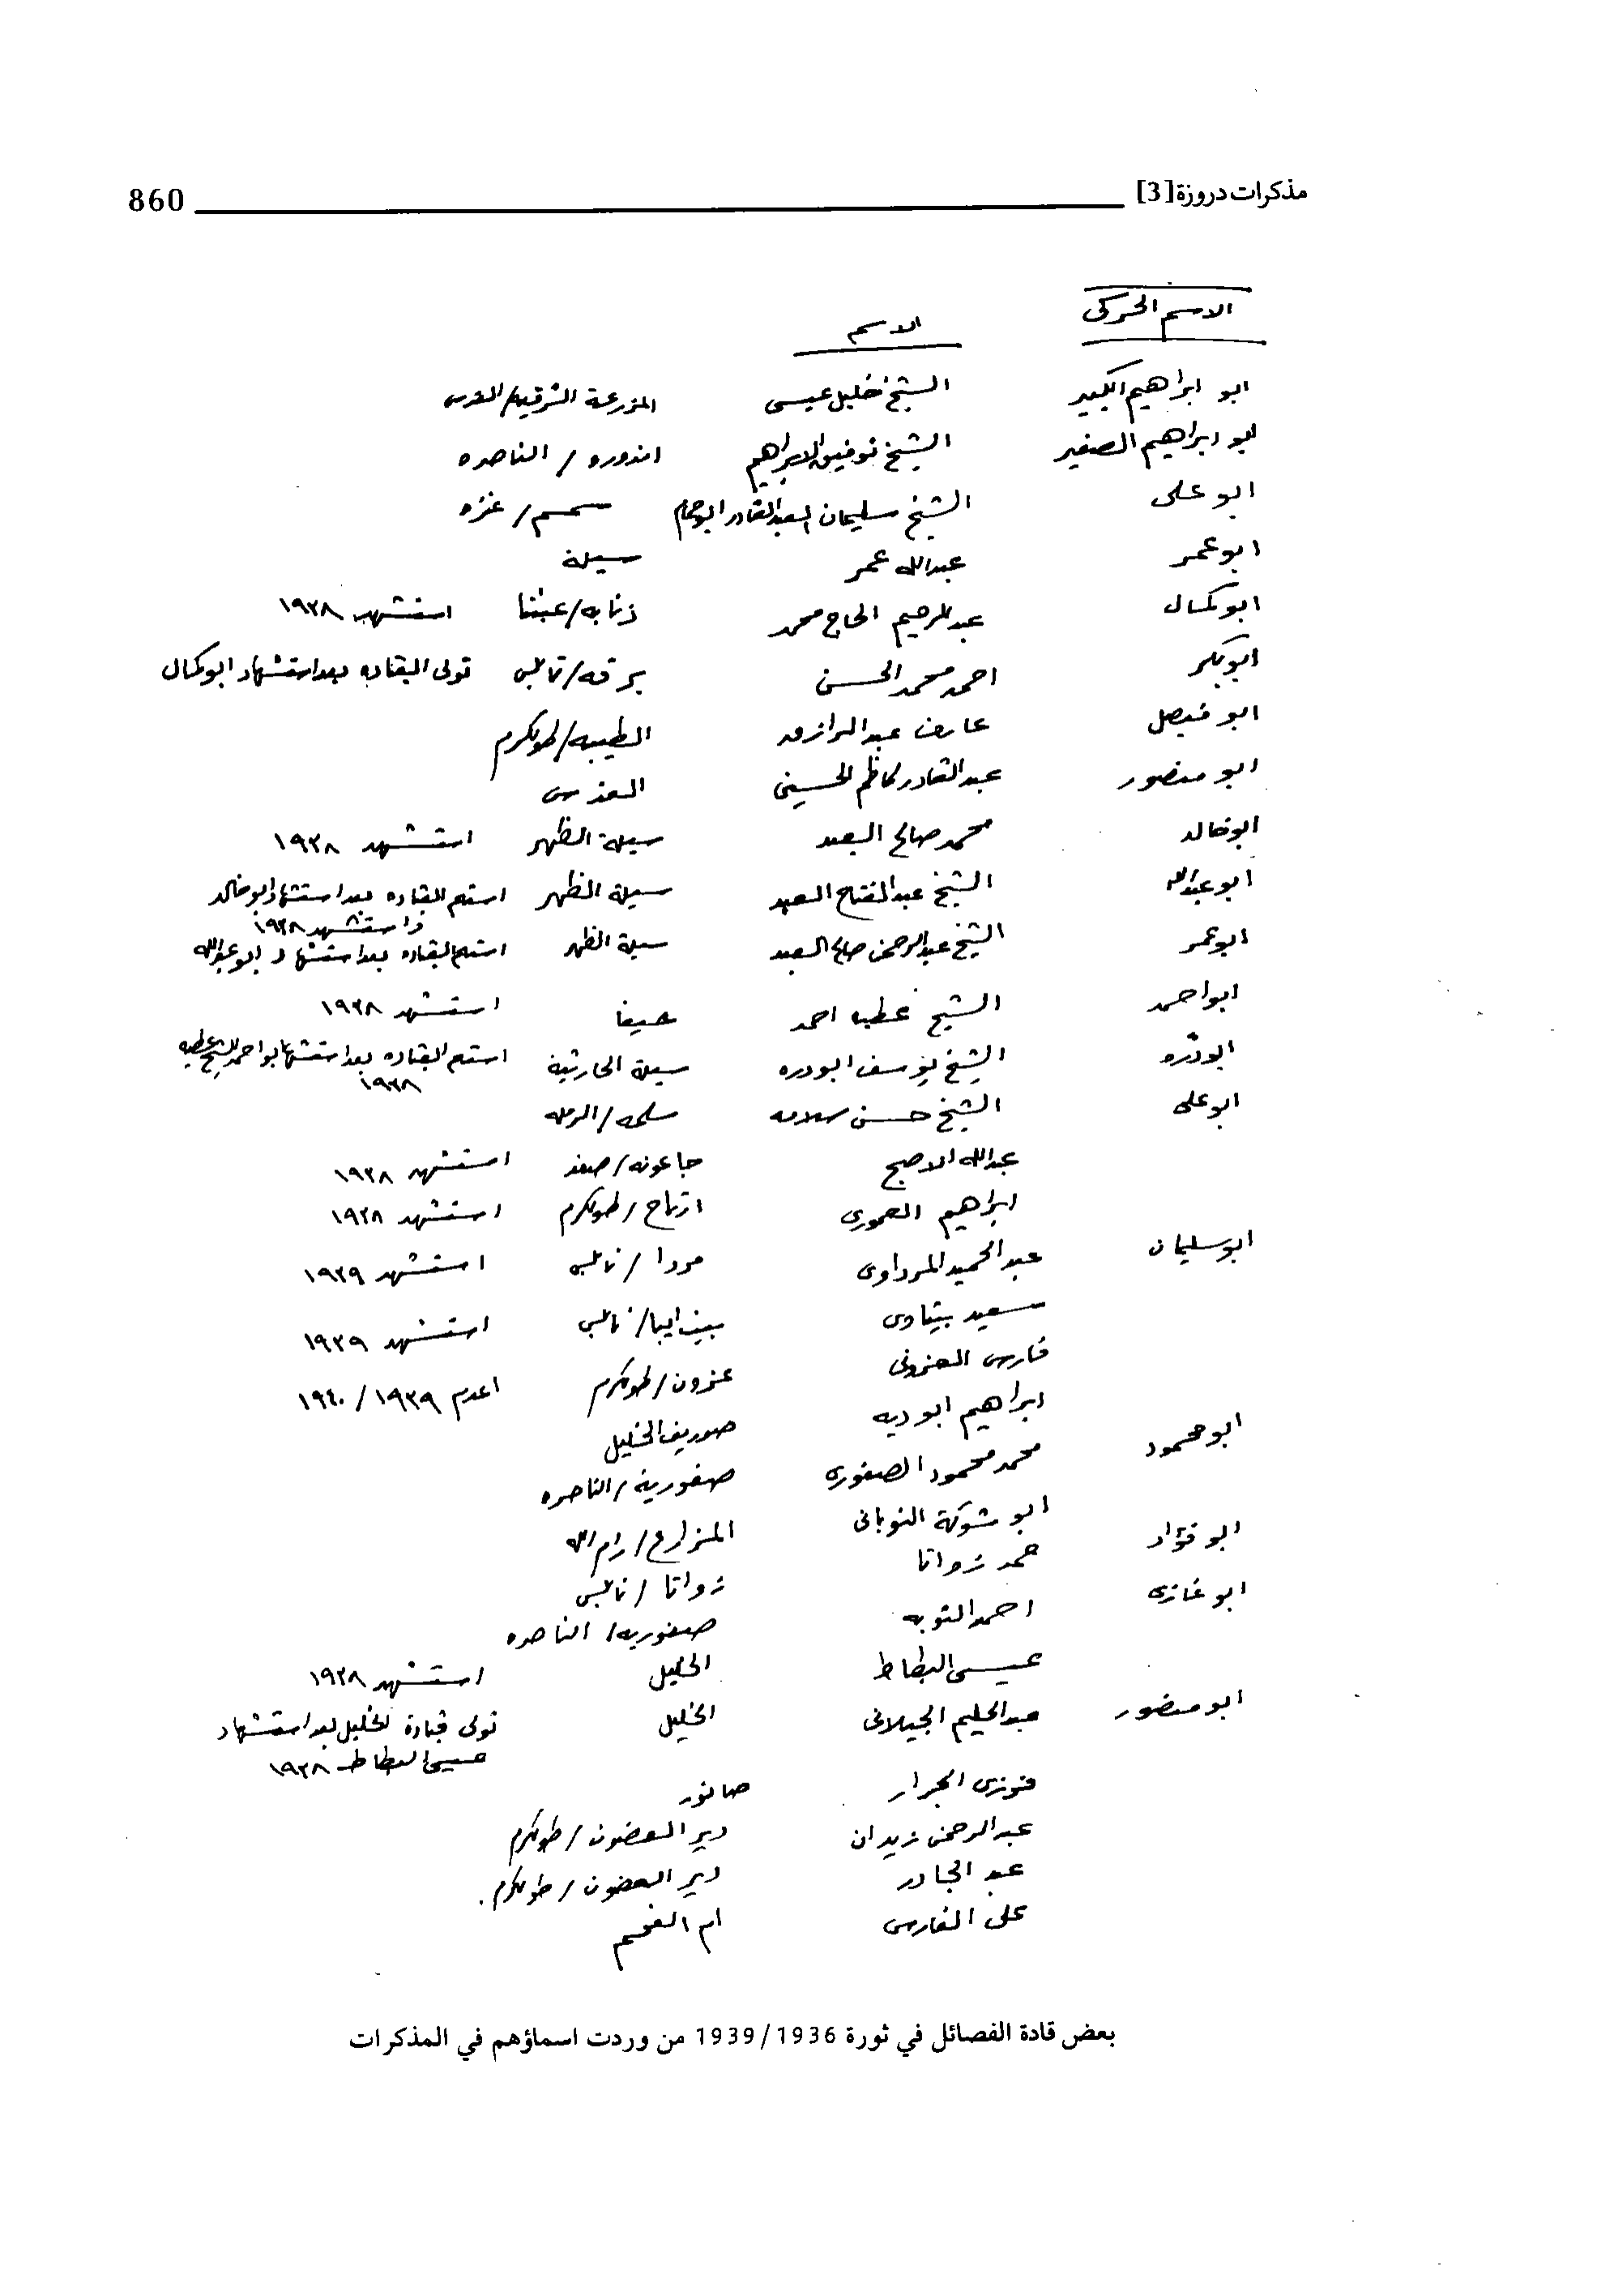 مذكرات دروزة [3] 860
الاسم الحركى الاسم
ابو ابراهيم الكبير الشيخ خليل عيسى المزرعة الشرقيه/القدس
ابو ابراهيم الصغير الشيخ توفيق الابراهيم اندوره / الناصره
ابو على الشيخ سليمان العبدالقادر ابوحمام سمسم/غزه
ابو عمر عبدالله عمر سيلة
ابو كمال عبدالرحيم الحاج محمد ذنابه/عنبتا استشهد ١٩٣٨
ابو بكر احمد محمد الحسن برقه/نابلس تولى القياده بعد استشهاد ابو كمال
ابو فيصل عارف عبد الرازق الطيبه/طولكرم
ابو منصور عبد القادر كاظم الحسينى القدس
ابو خالد محمد صالح الحمد سيلة الظهر استشهد ١٩٣٨
ابو عبدالله الشيخ عبدالفتاح الحمد سيلة الظهر استلم القياده بعد استشهاد ابو خالد
واستشهد ١٩٣٨
ابو عمر الشيخ عبدالرحمن صالح الحمد سيلة الظهر استلم القياده بعد استشهاد ابو عبدالله
ابو احمد الشيخ عطيه احمد حيفا استشهد ١٩٣٨
ابو درّه الشيخ يوسف ابودره سيلة الحارثية استلم القياده بعد استشهاد ابو احمد الشيخ عطيه
١٩٣٨
ابو على الشيخ حسن سلامه سلمه/الرمله
عبدالله الاصبح جاعونه/صفد استشهد ١٩٣٨
ابراهيم العمورى ارتاح/طولكرم استشهد ١٩٣٨
ابو سليمان عبد الحميد المرداوى مردا/نابلس استشهد ١٩٣٩
سعيد بيتاوى بيت ايبا/نابلس استشهد ١٩٣٩
فارس العزونى عزون/طولكرم اعدم ١٩٣٩/١٩٤٠
ابراهيم ابو ديه صوريف الخليل
ابو محمود محمد محمود الصفورى صفورية/الناصره
ابو شوكة النوبانى المزارع/رام الله
ابو فؤاد حمد زواتا زواتا/نابلس
ابو غازى احمد التوبه صفوريه/الناصره
عيسى البطاط الخليل استشهد ١٩٣٨
ابو منصور عبدالحليم الجيلانى الخليل تولى قيادة الخليل بعد استشهاد
عيسى البطاط ١٩٣٨
فوزى الجرار صانور
عبد الرحمن زيدان دير الغصون/طولكرم
عبد الجادر دير الغصون/طولكرم.
على الفارس ام الفحم
بعض قادة الفصائل في ثورة 1939/1936 من وردت اسماؤهم في المذكرات